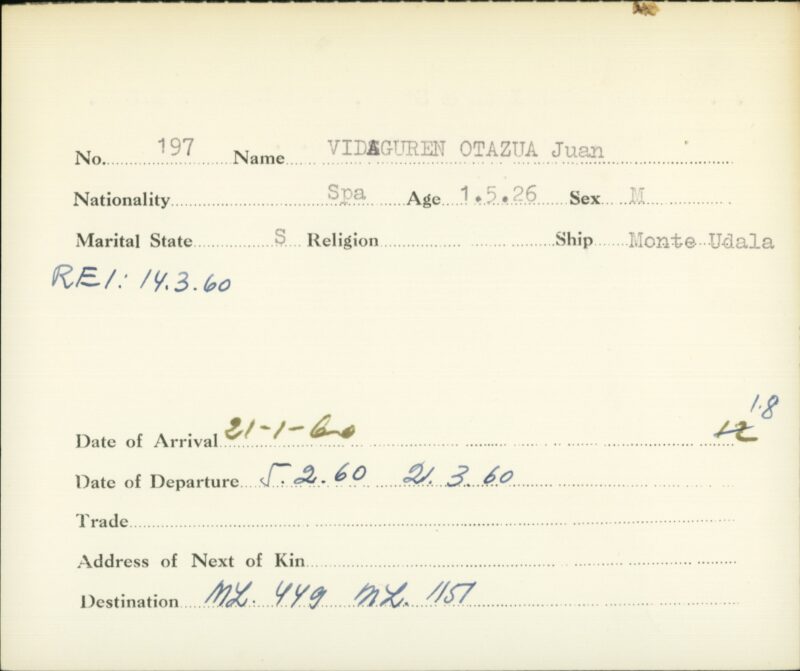 No. 197 Name VIDAGUREN OTAZUA Juan
Nationality Spa Age 1.5.26 Sex M
Marital State S Religion Ship Monte Udala
REI: 14.3.60
1.8
Date of Arrival 21-1-60 12
Date of Departure 5.2.60 21.3.60
Trade
Address of Next of Kin
Destination ML. 449 ML. 1151